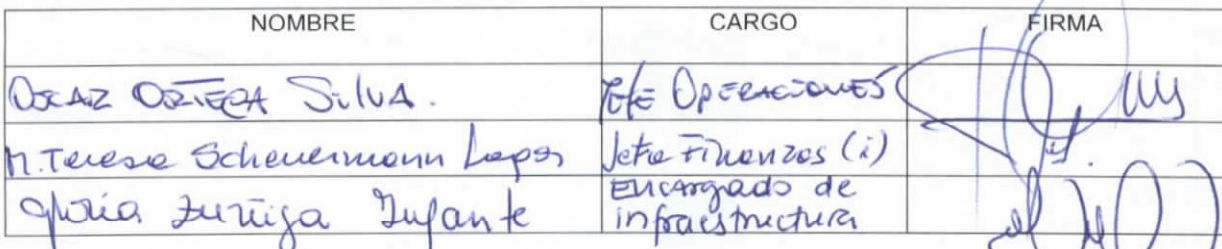 NOMBRE CARGO FIRMA
Oscar Ortega Silva. Jefe Operaciones
M. Teresa Scheuermann Lagos Jefa Finanzas (i)
Gloria Zuñiga Infante Encargado de
infraestructura